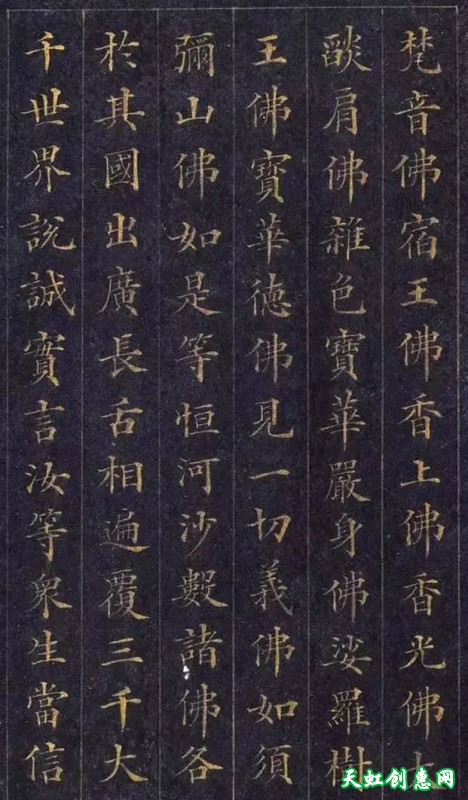 梵音佛宿王佛香上佛香光佛大
燄肩佛雜色寶華嚴身佛娑羅樹
王佛寶華德佛見一切義佛如須
彌山佛如是等恒河沙數諸佛各
於其國出廣長舌相遍覆三千大
千世界說誠實言汝等衆生當信
天虹创意网